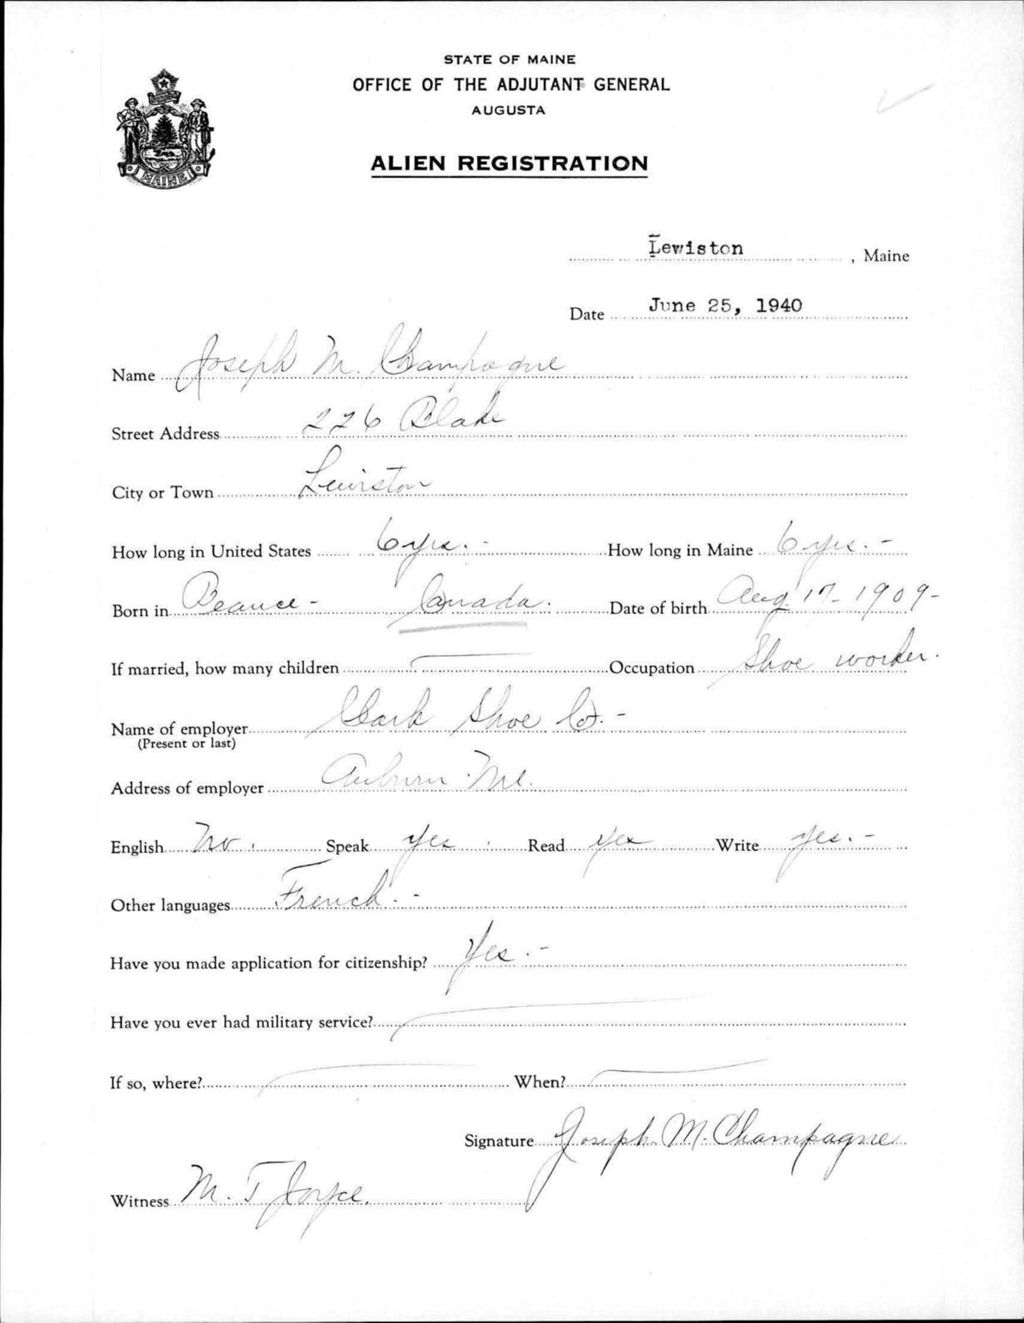 STATE OF MAINE
OFFICE OF THE ADJUTANT GENERAL
AUGUSTA
ALIEN REGISTRATION
MAINE
Lewiston, Maine
Date June 25, 1940
Name Joseph M. Champagne
Street Address 226 Blake
City or Town Lewiston
How long in United States 6 yrs. - How long in Maine 6 yrs. -
Born in Beauce - Canada. Date of birth Aug. 17 - 1909 -
If married, how many children — Occupation Shoe worker.
Name of employer Clark Shoe Co. -
(Present or last)
Address of employer Auburn Me.
English No. Speak yes Read yes Write yes. -
Other languages French. -
Have you made application for citizenship? Yes. -
Have you ever had military service? —
If so, where? — When? —
Signature Joseph M. Champagne
Witness M. T. Joyce.